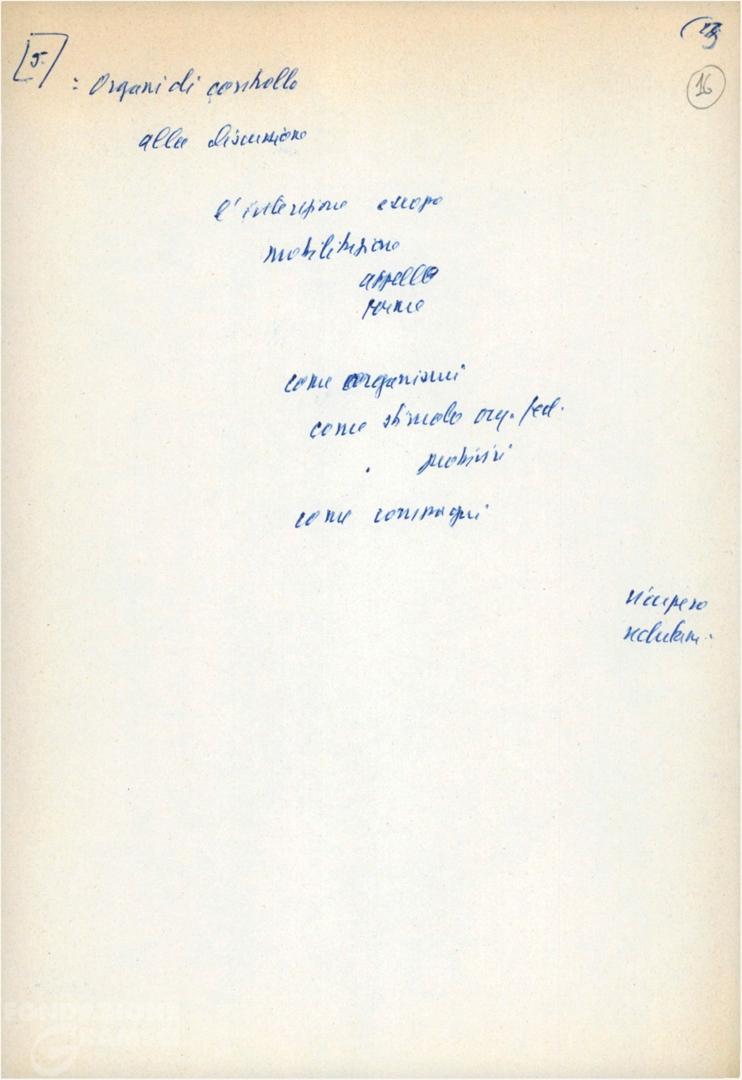 5.
16
: Organi di controllo
alla discussione
l'intenzione
mobilitazione
appello
forme
come organismi
come stimolo org. fed.
probiviri
come compagni
recupero
reclutam.
FONDAZIONE
GRAMSCI